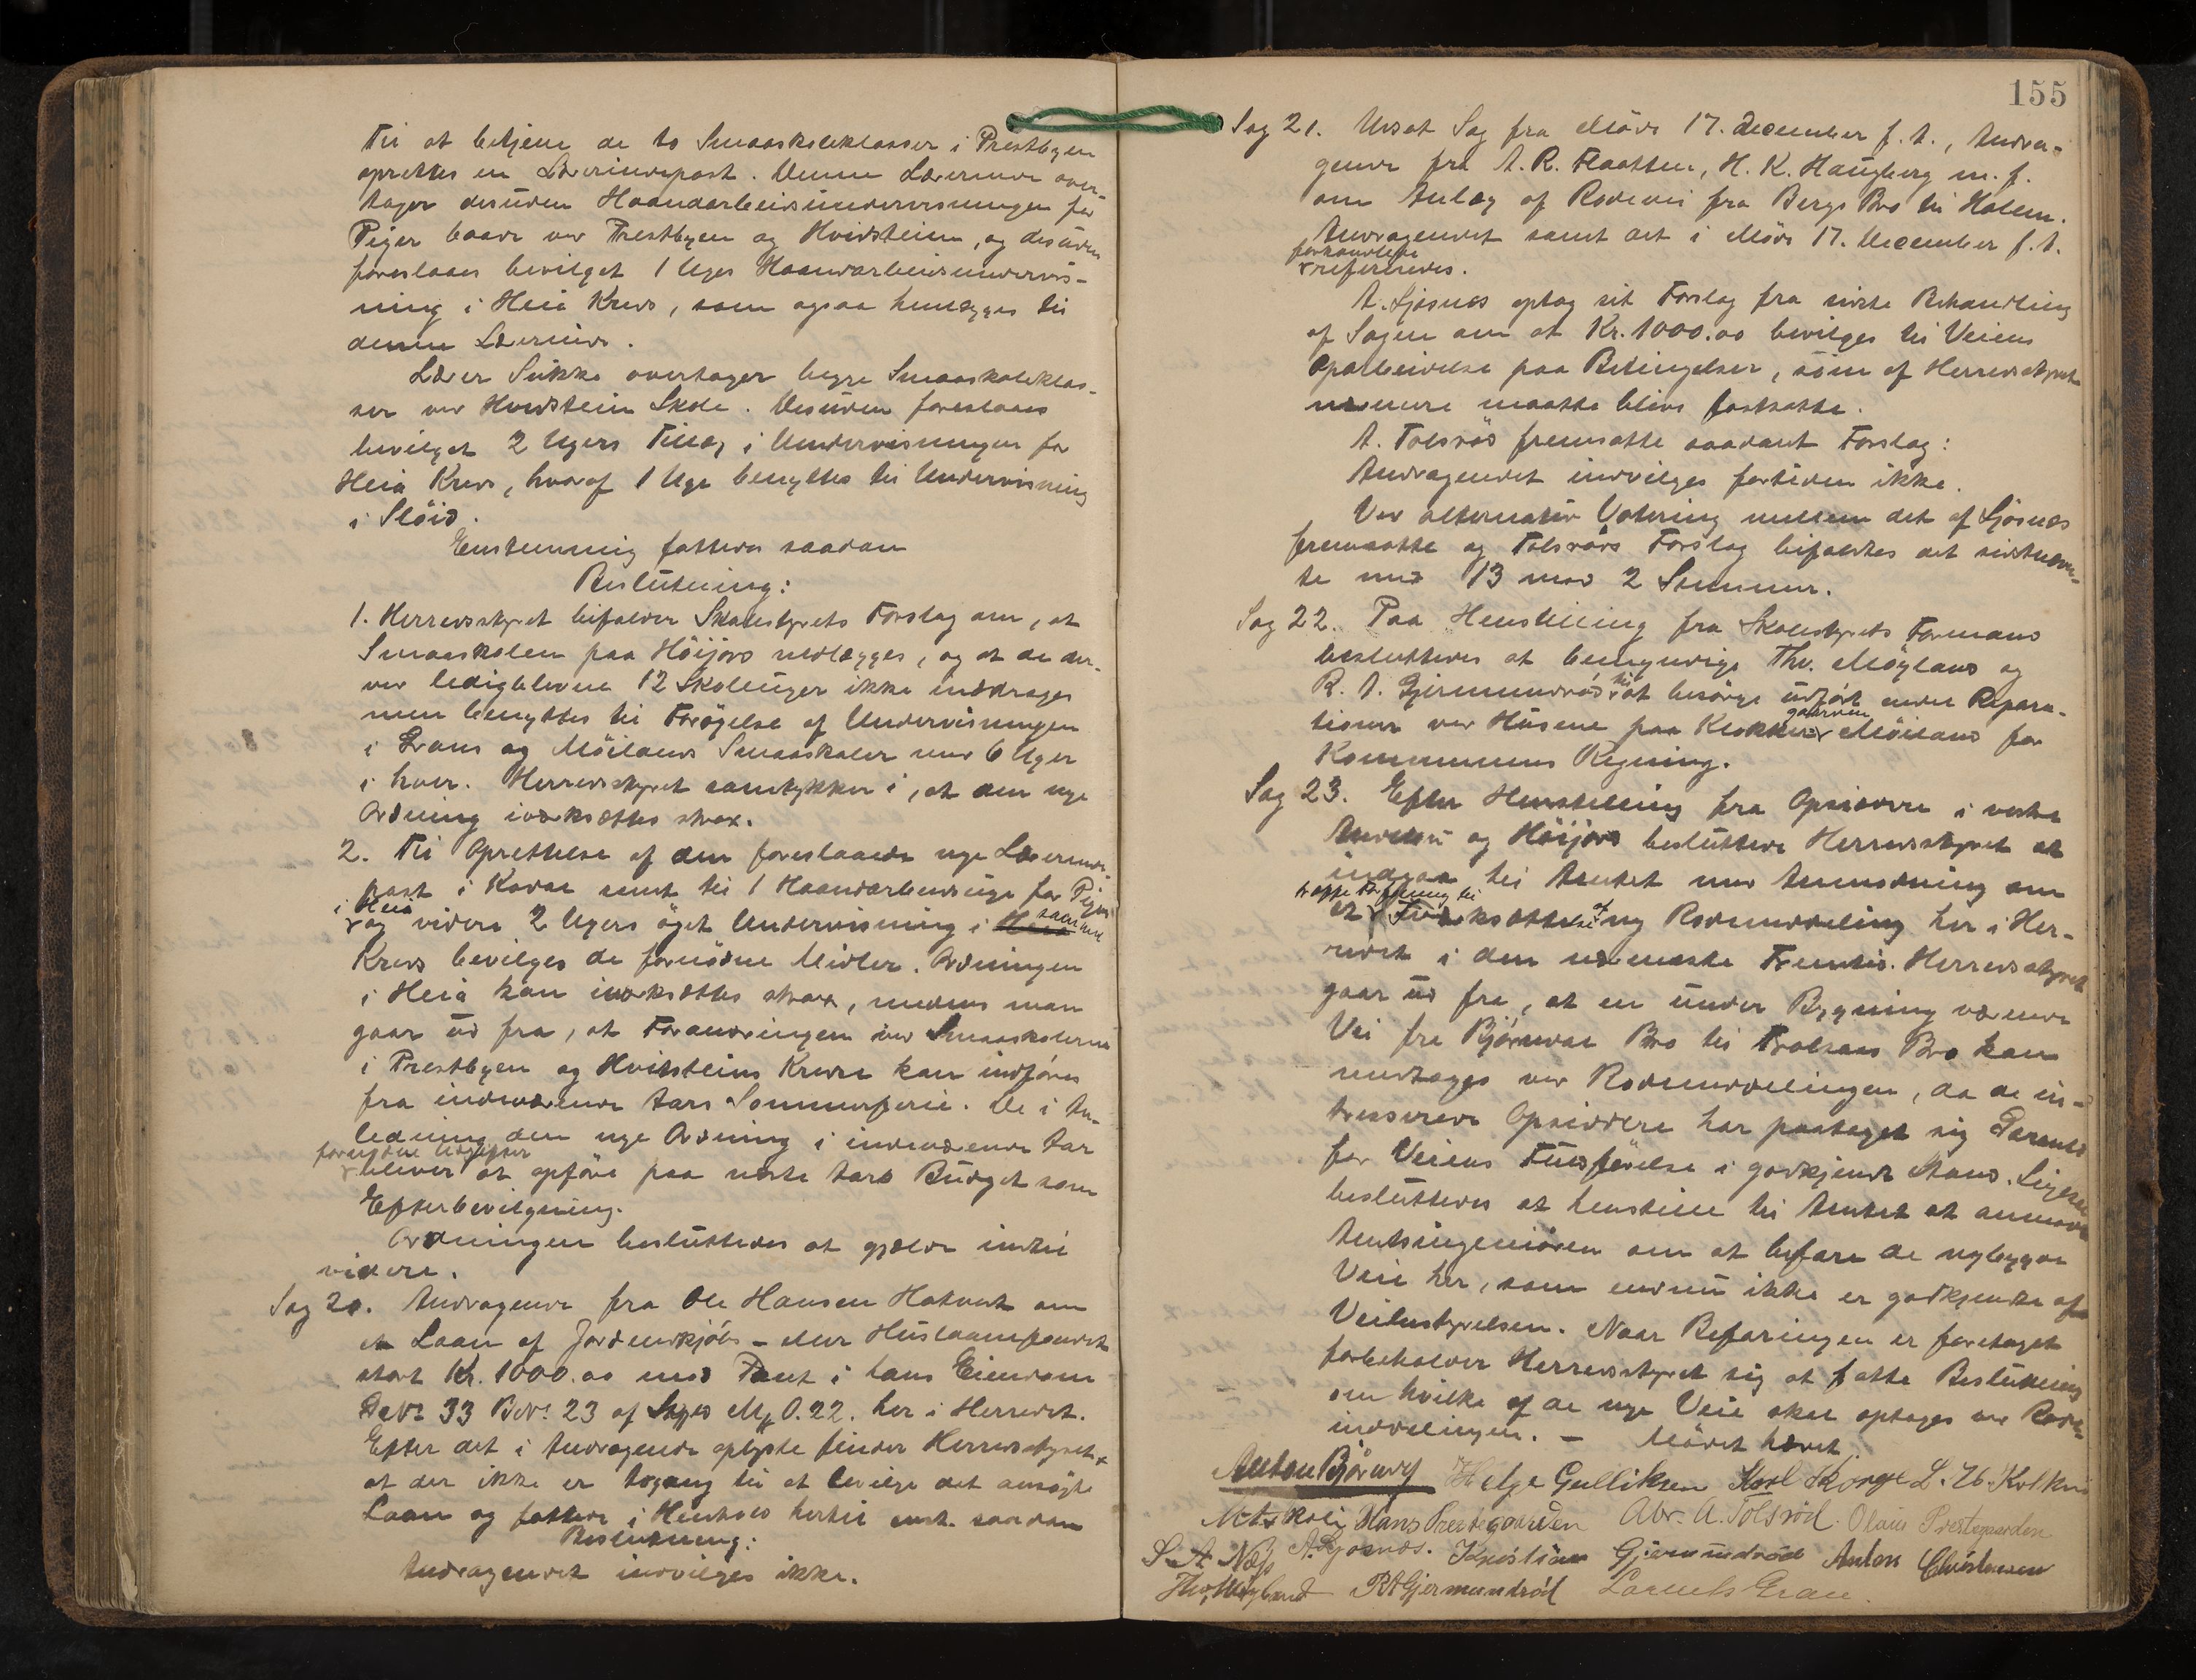 Til at betjene de to Smaaskoleklasser i Prestbyen
oprettes en Lærerindepost. Denne Lærerinde over-
tager desuden Haandarbeidsundervisningen for
Piger baade ved Prestbyen og Hvidstein, og desuden
foreslaaes bevilget 1 Uges Haandarbeidsundervis-
ning i Heia Kreds, som ogsaa henlægges til
denne Lærerinde.
Lærer Sukke overtager begge Smaaskoleklas-
ser ved Hvidstein Skole. Desuden foreslaaes
bevilget 2 Ugers Tillæg i Undervisningen for
Heia Kreds, hvoraf 1 Uge benyttes til Undervisning
i Sløid.
Enstemmig fattedes saadan
Beslutning:
1. Herredsstyret bifalder Skolestyrets Forslag om, at
Smaaskolen paa Höijord nedlægges, og at de der-
ved ledigblevne 12 Skoleuger ikke inddrages
men benyttes til Forøgelse af Undervisningen
i Grans og Möilands Smaaskoler med 6 Uger
i hver. Herredsstyret samtykker i, at den nye
Ordning iværksættes strax.
2. Til Oprettelse af den foreslaaede nye Lærerinde-
post i Kodal samt til 1 Haandarbeidsuge for Piger
i Heia
og videre 2 Ugers øget Undervisning i samme
Kreds bevilges de fornødne Midler. Ordningen
i Heia kan iværksættes strax, medens man
gaar ud fra, at Forandringen ved Smaaskolerne
i Prestbyen og Hvidsteins Kredse kan indføres
fra indeværende Aars Sommerferie. De i An-
ledning den nye Ordning i indeværende Aar
fornødne Udgifter
bliver at opføre paa næste Aars Budget som
Efterbevilgning.
Ordningen besluttedes at gjælde indtil
videre.
Sag 20. Andragende fra Ole Hansen Hotvedt om
et Laan af Jordindkjøbs- eller Huslaanfondet
stort Kr. 1000.00 mod Pant i hans Eiendom
G.No. 33 B.No. 23 af Skyld Mk 0.22. her i Herredet.
Efter det i Andragende oplyste finder Herredsstyret,
at der ikke er Adgang til at bevilge det ansøgte
Laan og fattede i Henhold hertil enst. saadan
Beslutning:
Andragendet indvilges ikke.
155
Sag 21. Udsat Sag fra Møde 17. December f. A., Andra-
gende fra A. R. Flaatten, H. K. Haugberg m. f.
om Anlæg af Rodevei fra Bergs Bro til Holm.
Andragendet samt det i Møde 17. December f. A.
forhandlede
refereredes.
A. Sjøsnæs optog sit Forslag fra sidste Behandling
af Sagen om at Kr. 1000.00 bevilges til Veiens
Oparbeidelse paa Betingelser, som af Herredsstyret
nærmere maatte blive fastsatte.
A. Tolsrød fremsatte saadant Forslag:
Andragendet indvilges fortiden ikke.
Ved alternativ Votering mellem det af Sjøsnæs
fremsatte og Tolsrøds Forslag bifaldtes det sidstnævn-
te med 13 mod 2 Stemmer.
Sag 22. Paa Henstilling fra Skolestyrets Formand
besluttedes at bemyndige Thv. Møyland og
R. A. Gjermundrød til at besørge udført endel Repara-
tioner ved Husene paa Klokkergaarden Möiland for
Kommunens Regning.
Sag 23. Efter Henstilling fra Opsiddere i vestre
Andebu og Höijord besluttede Herredsstyret at
indgaa til Amtet med Anmodning om
at træffe Forføining til
Iværksættelse af ny Rodeinddeling her i Her-
redet i den nærmeste Fremtid. Herredsstyret
gaar ud fra, at en under Bygning værende
Vei fra Bjørndal Bro til Trolsaas Bro kan
medtages ved Rodeinddelingen, da de in-
tresserede Opsiddere har paataget sig Garanti
for Veiens Fuldførelse i godkjendt Stand. Ligesaa
besluttedes at henstille til Amtet at anmode
Amtsingeniøren om at befare de nybyggede
Veie her, som endnu ikke er godkjendte af
Veibestyrelsen. Naar Befaringen er foretaget
forbeholder Herredsstyret sig at fatte Beslutning
om hvilke af de nye Veie skal optages ved Rode-
inddelingen. – Mødet hævet.
Anton Bjørndal Helge Gulliksen Karl Skorge
Hans Prestegaarden Abr. A. Tolsrød. Olaus Prestegaarden
S. A. Næss A. Sjøsnæs. Kristian Gjermundrød Anton Christensen
Thv. Møyland RAGjermundrød Laurits Gran.